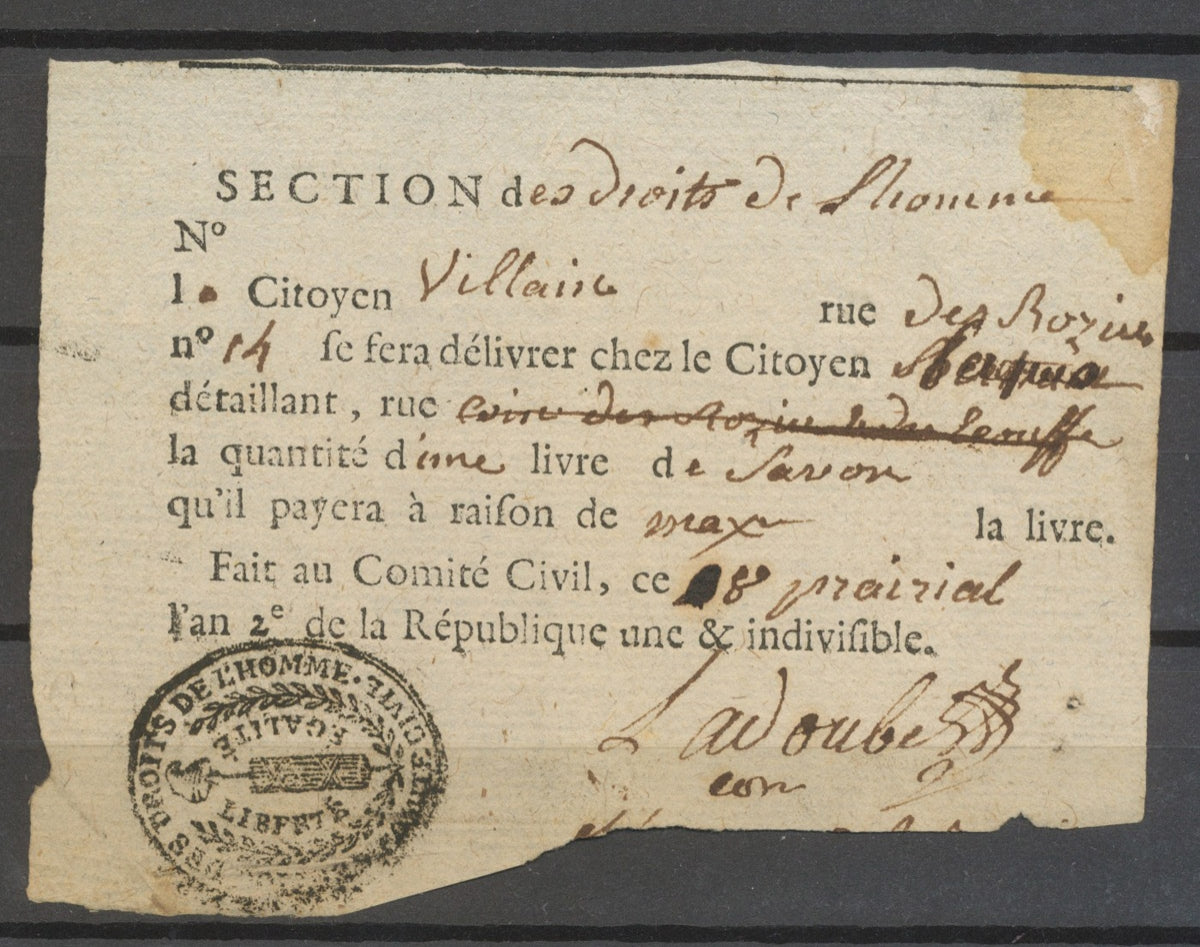 SECTION des droits de Lhomme
N°
l. Citoyen Villain rue des Roziers
n° 14 ſe fera délivrer chez le Citoyen
détaillant, rue coin des Rozier
la quantité d'une livre de Savon
qu'il payera à raiſon de max la livre.
Fait au Comité Civil, ce 8 prairial
l'an 2e de la République une & indiviſible.
Ladoubé
com
DES DROITS DE L'HOMME. CIVIL
EGALITE
LIBERTE